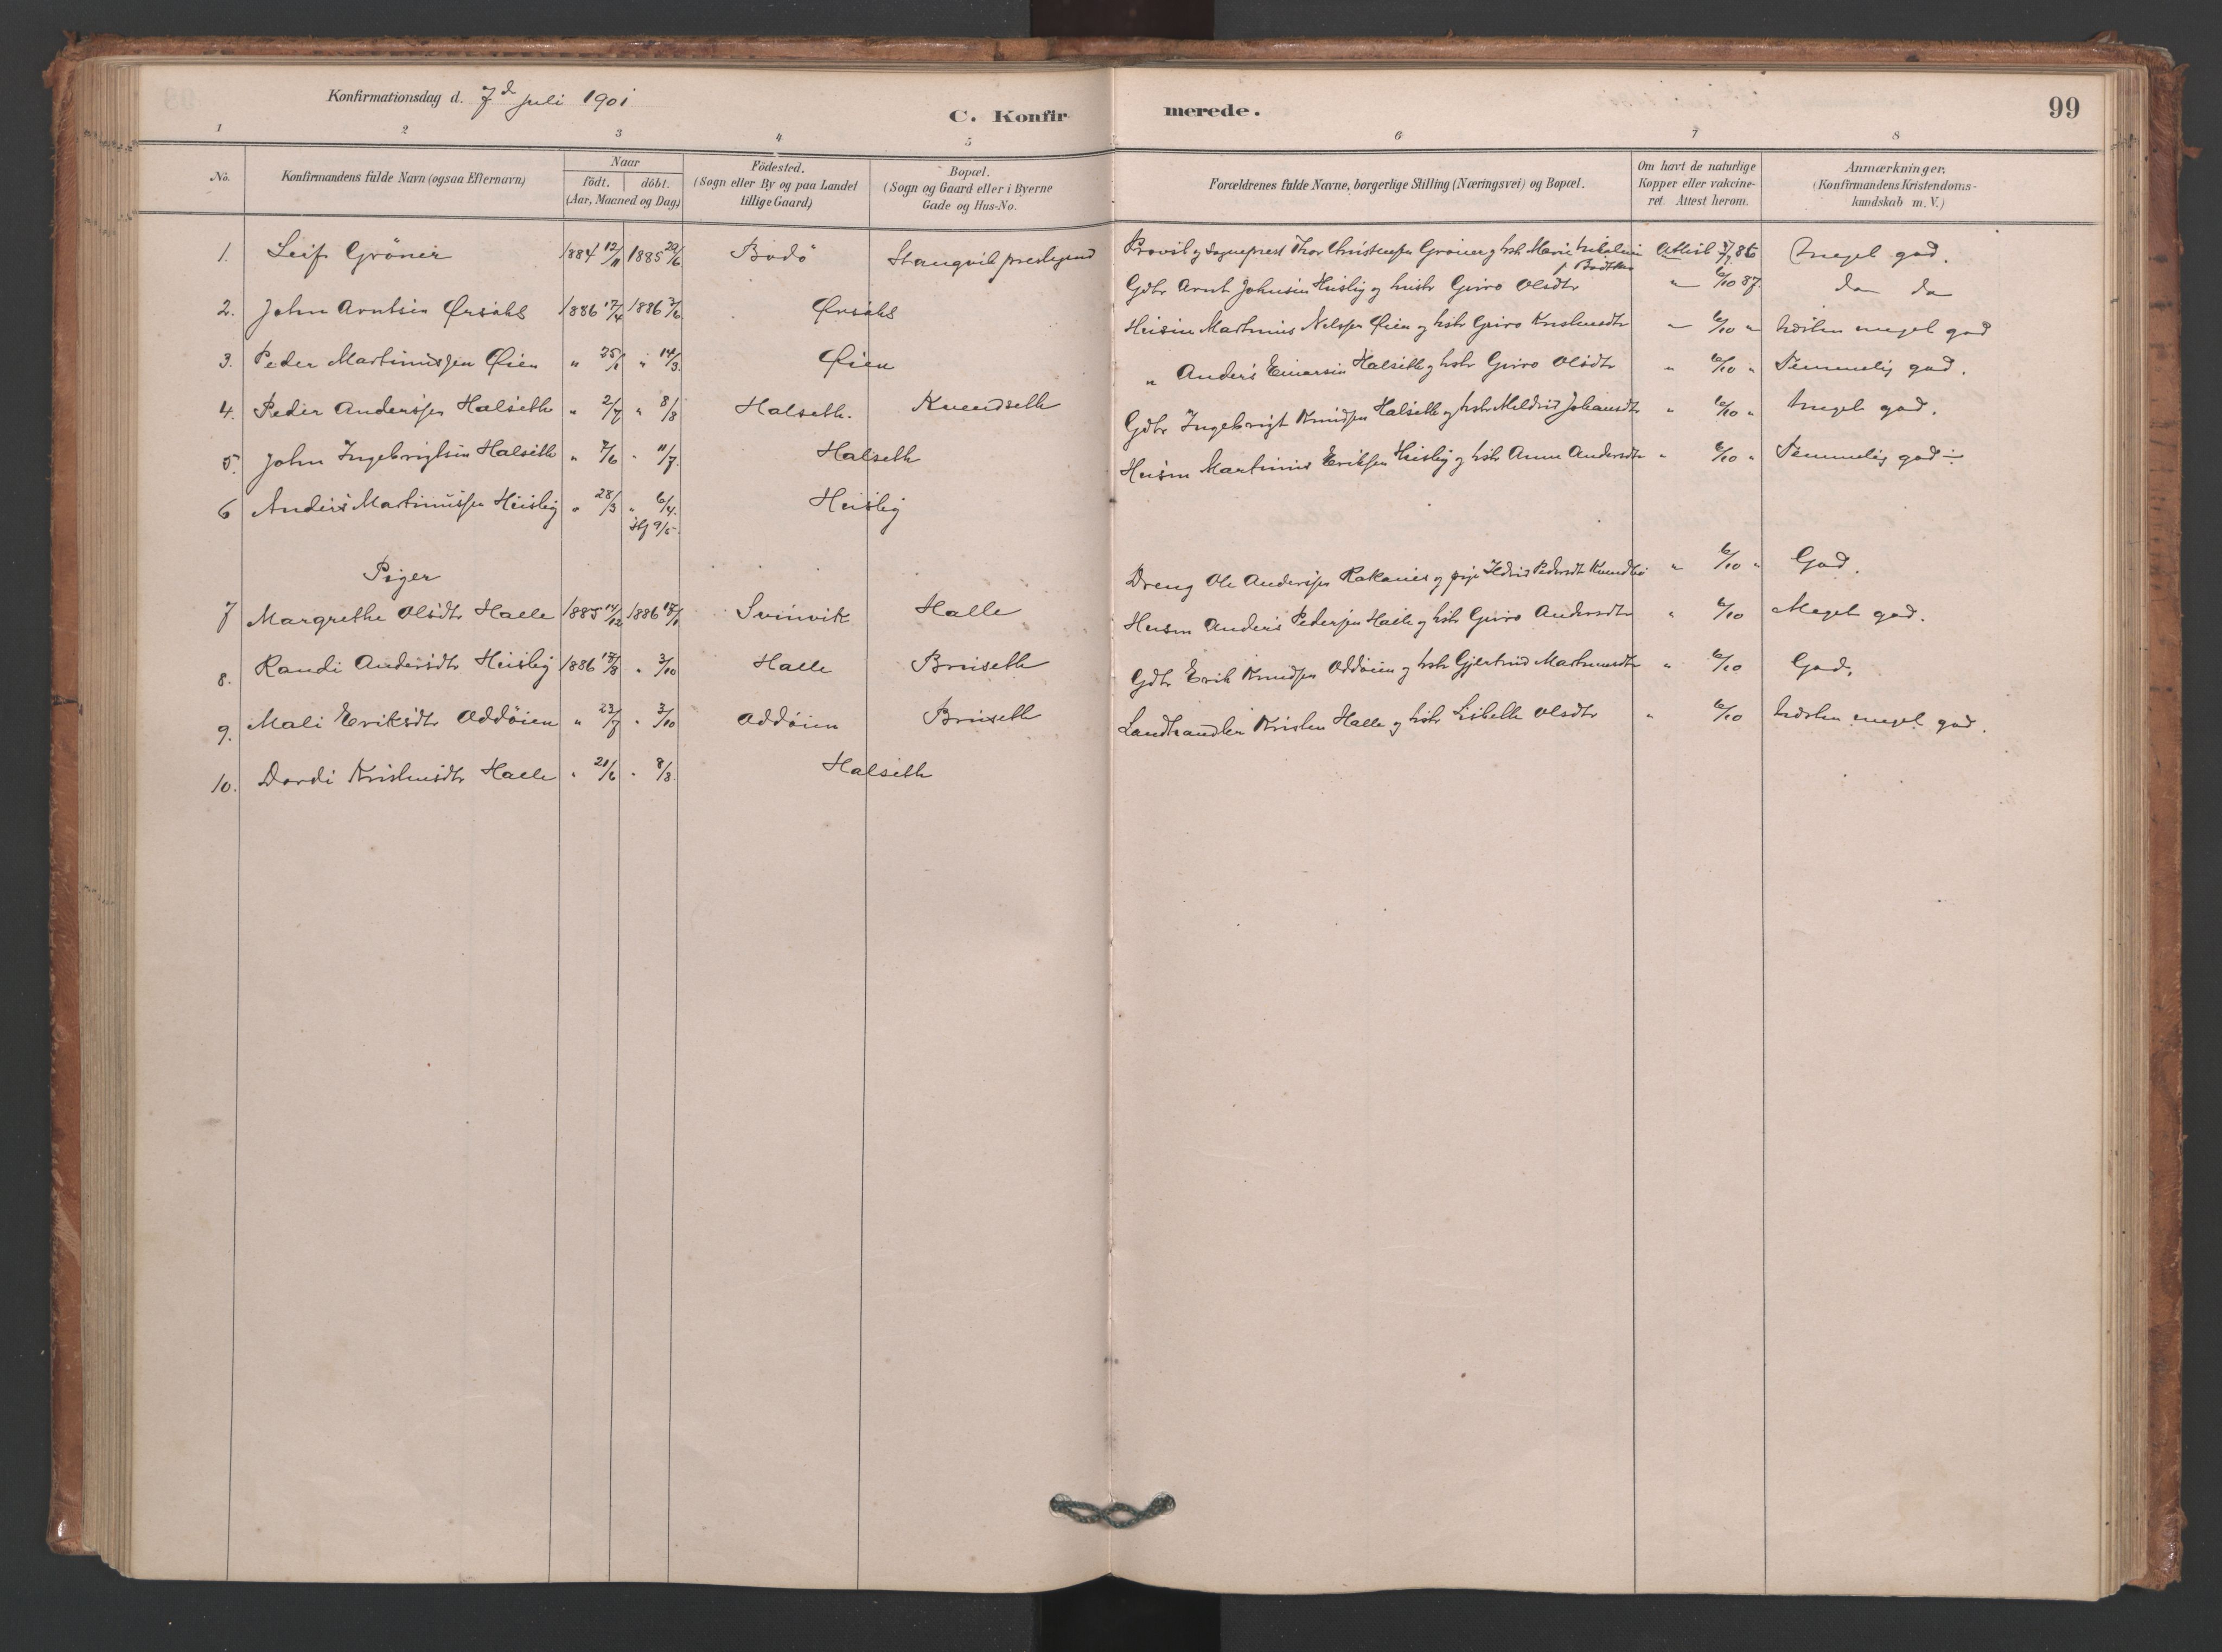 Konfirmationsdag d. 7d Juli 1901
C. Konfirmerede.
99
1 2 3 4 5 6 7 8
No.
Konfirmandens fulde Navn (ogsaa Efternavn)
Naar
födt. | döbt.
(Aar, Maaned og Dag)
Födested.
(Sogn eller By og paa Landet
tillige Gaard)
Bopæl.
(Sogn og Gaard eller i Byerne
Gade og Hus-No.
Forældrenes fulde Navne, borgerlige Stilling (Næringsvei) og Bopæl.
Om havt de naturlige
Kopper eller vakcine-
ret. Attest herom.
Anmærkninger.
(Konfirmandens Kristendoms-
kundskab m. V.)
1. Leif Gröner 1884 12/11 1885 22/6 Bodö Stangvik prestegaard Provst og Sogneprest Thor Christensen Gröner og hstr Marie Attest 86 Meget god.
2. John Arntsen Ørsahl 1886 17/4 1886 3/6 Ørsahl Gdbr Arnt Johnsen Heisly og hustr Guro Olsdtr " 6/10 87. do do
3. Peder Martinussen Øien " 25/1 " 14/3 Øien Husm Martinus Nilssen Øien og hstr Guro Kristensdtr " 6/10 " Næsten meget god
4. Peder Anderssen Halseth " 2/7 " 8/8 Halseth. Kvendseth " Anders Einarsen Halseth og hstr Guro Olsdtr " 6/10 " Temmelig god.
5. John Ingebrigtsen Halseth " 7/6 " 11/7 Halseth Gdbr Ingebrigt Knudsen Halseth og hstr Mildrid Johansdtr " 6/10 " Meget god.
6 Anders Martinussen Heisly " 28/3 " 6/4. Hj 9/5 Heisly Husm Martinus Eriksen Heisly og hstr Anne Andersdtr " 6/10 " Temmelig god ÷
Piger
7 Margrethe Olsdtr Halle 1885 14/12 1886 17/1 Svinvik Halle Dreng Ole Anderssen Rakanes og pige Ildrid Pedersdt " 6/10 " God.
8. Randi Andersdtr Heisly 1886 17/8 " 3/10 Halle Bruseth Husm Anders Pedersen Halle og hstr Guro Andersdtr " 6/10 Meget god.
9. Mali Eriksdtr Oddöien " 23/7 " 3/10 Oddöien Bruseth Gdbr Erik Knudsen Oddöien og hstr Gjertrud Martinusdtr " 6/10 God.
10. Dordi Kristensdtr Halle " 21/6 " 8/8. Halseth Landhandler Kristen Halle og hstr Lisbeth Olsdtr " 6/10 Næsten meget god.